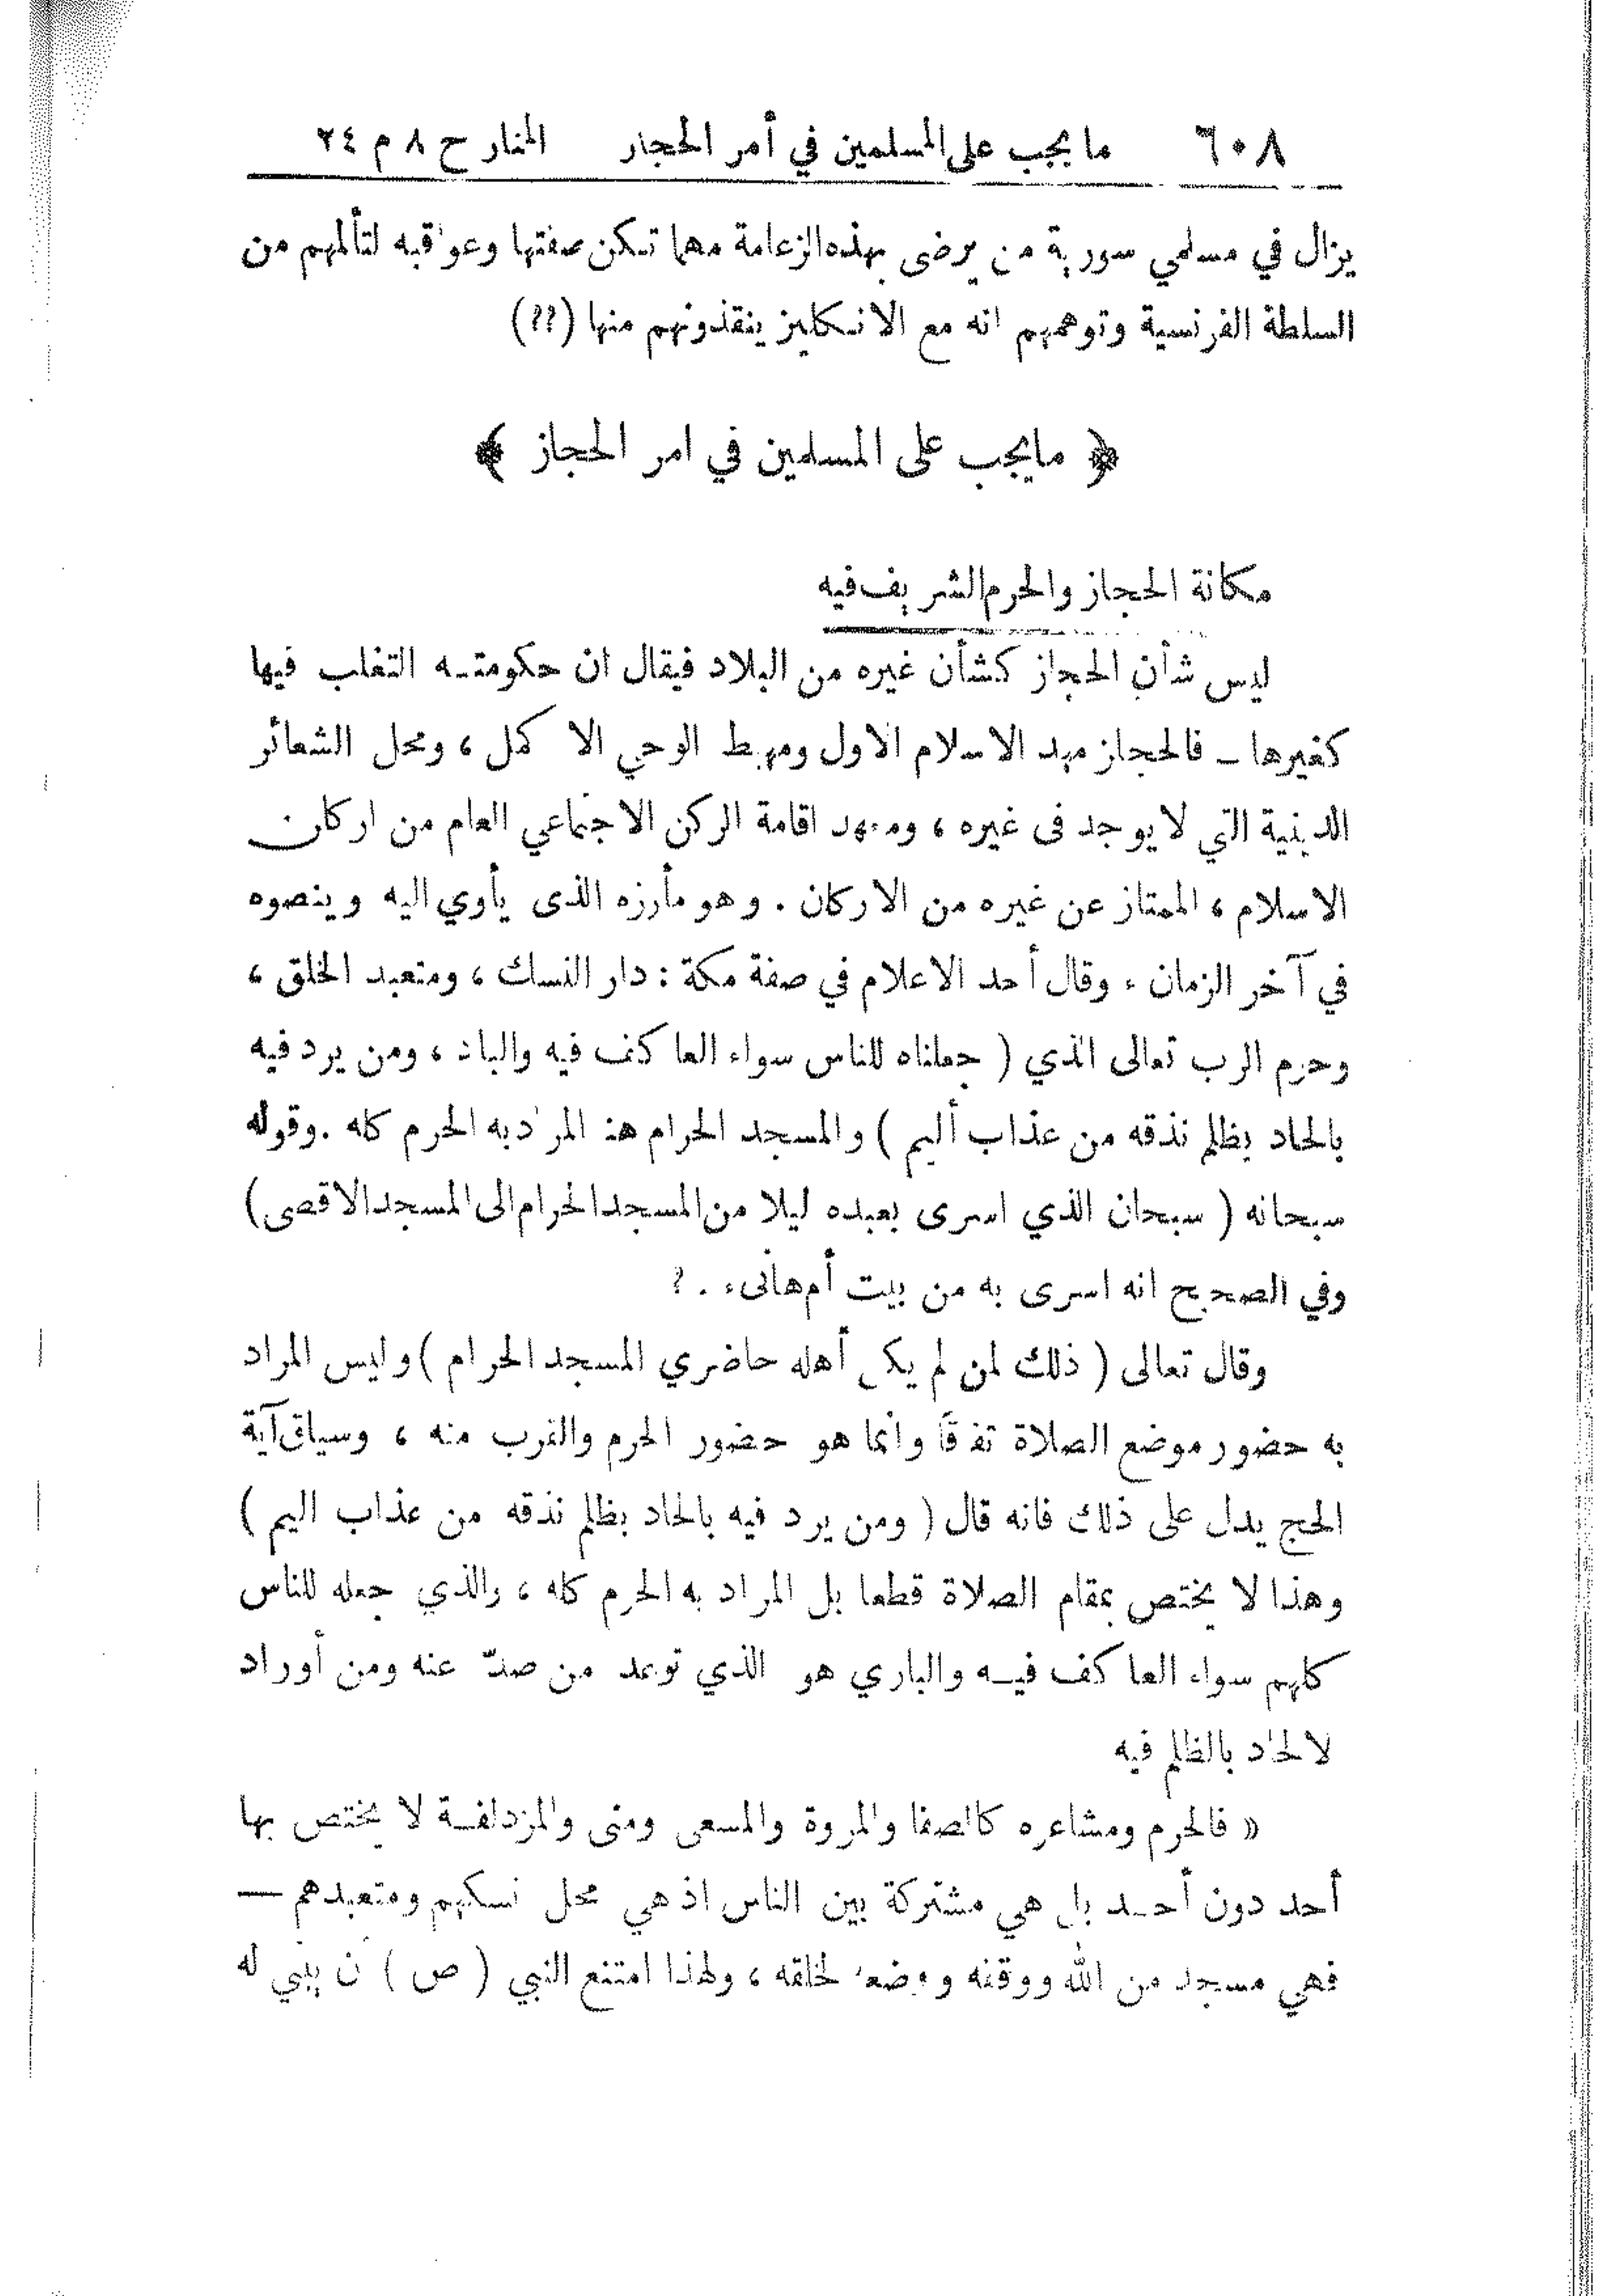 ٦٠٨ ما يجب على المسلمين في أمر الحجاز المنار ج ٨ م ٢٤
يزال في مسلمي سورية من يرضى بهذه الزعامة مهما تكن صفتها وعواقبه لتألمهم من
السلطة الفرنسية وتوهمهم انه مع الانكليز ينقذونهم منها (؟؟)
﴿ مايجب على المسلمين في امر الحجاز ﴾
مكانة الحجاز والحرم الشريف فيه
ليس شأن الحجاز كشأن غيره من البلاد فيقال ان حكومتـه التغلب فيها
كغيرها ـ فالحجاز مهد الاسلام الاول ومهبط الوحي الاكمل ، ومحل الشعائر
الدينية التي لا يوجد فى غيره ، ومعهد اقامة الركن الاجتماعي العام من اركان
الاسلام ، الممتاز عن غيره من الاركان . وهو مأرزه الذى يأوي اليه وينصوه
في آخر الزمان ، وقال أحد الاعلام في صفة مكة : دار النسك ، ومتعبد الخلق ،
وحرم الرب تعالى الذي ( جعلناه للناس سواء العاكف فيه والباد ، ومن يرد فيه
بالحاد بظلم نذقه من عذاب أليم ) والمسجد الحرام هنا المراد به الحرم كله . وقوله
سبحانه ( سبحان الذي اسرى بعبده ليلا من المسجد الحرام الى المسجد الاقصى )
وفي الصحيح انه اسرى به من بيت أم هانىء . ؟
وقال تعالى ( ذلك لمن لم يكن أهله حاضري المسجد الحرام ) وليس المراد
به حضور موضع الصلاة تفاقًا وانما هو حضور الحرم والقرب منه ، وسياق آية
الحج يدل على ذلك فانه قال ( ومن يرد فيه بالحاد بظلم نذقه من عذاب اليم )
وهذا لا يختص بمقام الصلاة قطعا بل المراد به الحرم كله ، والذي جعله للناس
كلهم سواء العاكف فيـه والباري هو الذي توعد من صدّ عنه ومن أوراد
لالحاد بالظلم فيه
« فالحرم ومشاعره كالصفا والمروة والمسعى ومنى والمزدلفـة لا يختص بها
أحد دون أحـد بل هي مشتركة بين الناس اذ هي محل نسكهم ومتعبدهم —
فهي مسجد من الله ووقفه ووضعه لخلقه ، ولهذا امتنع النبي ( ص ) ان يبني له